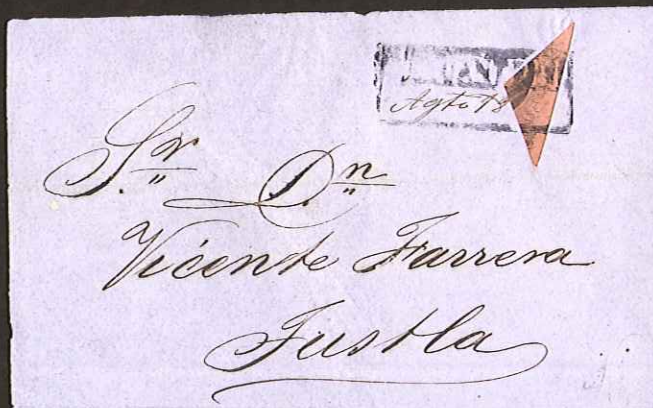 Agto 18
Sr. Dn.
Vicente Farrera
Tustla